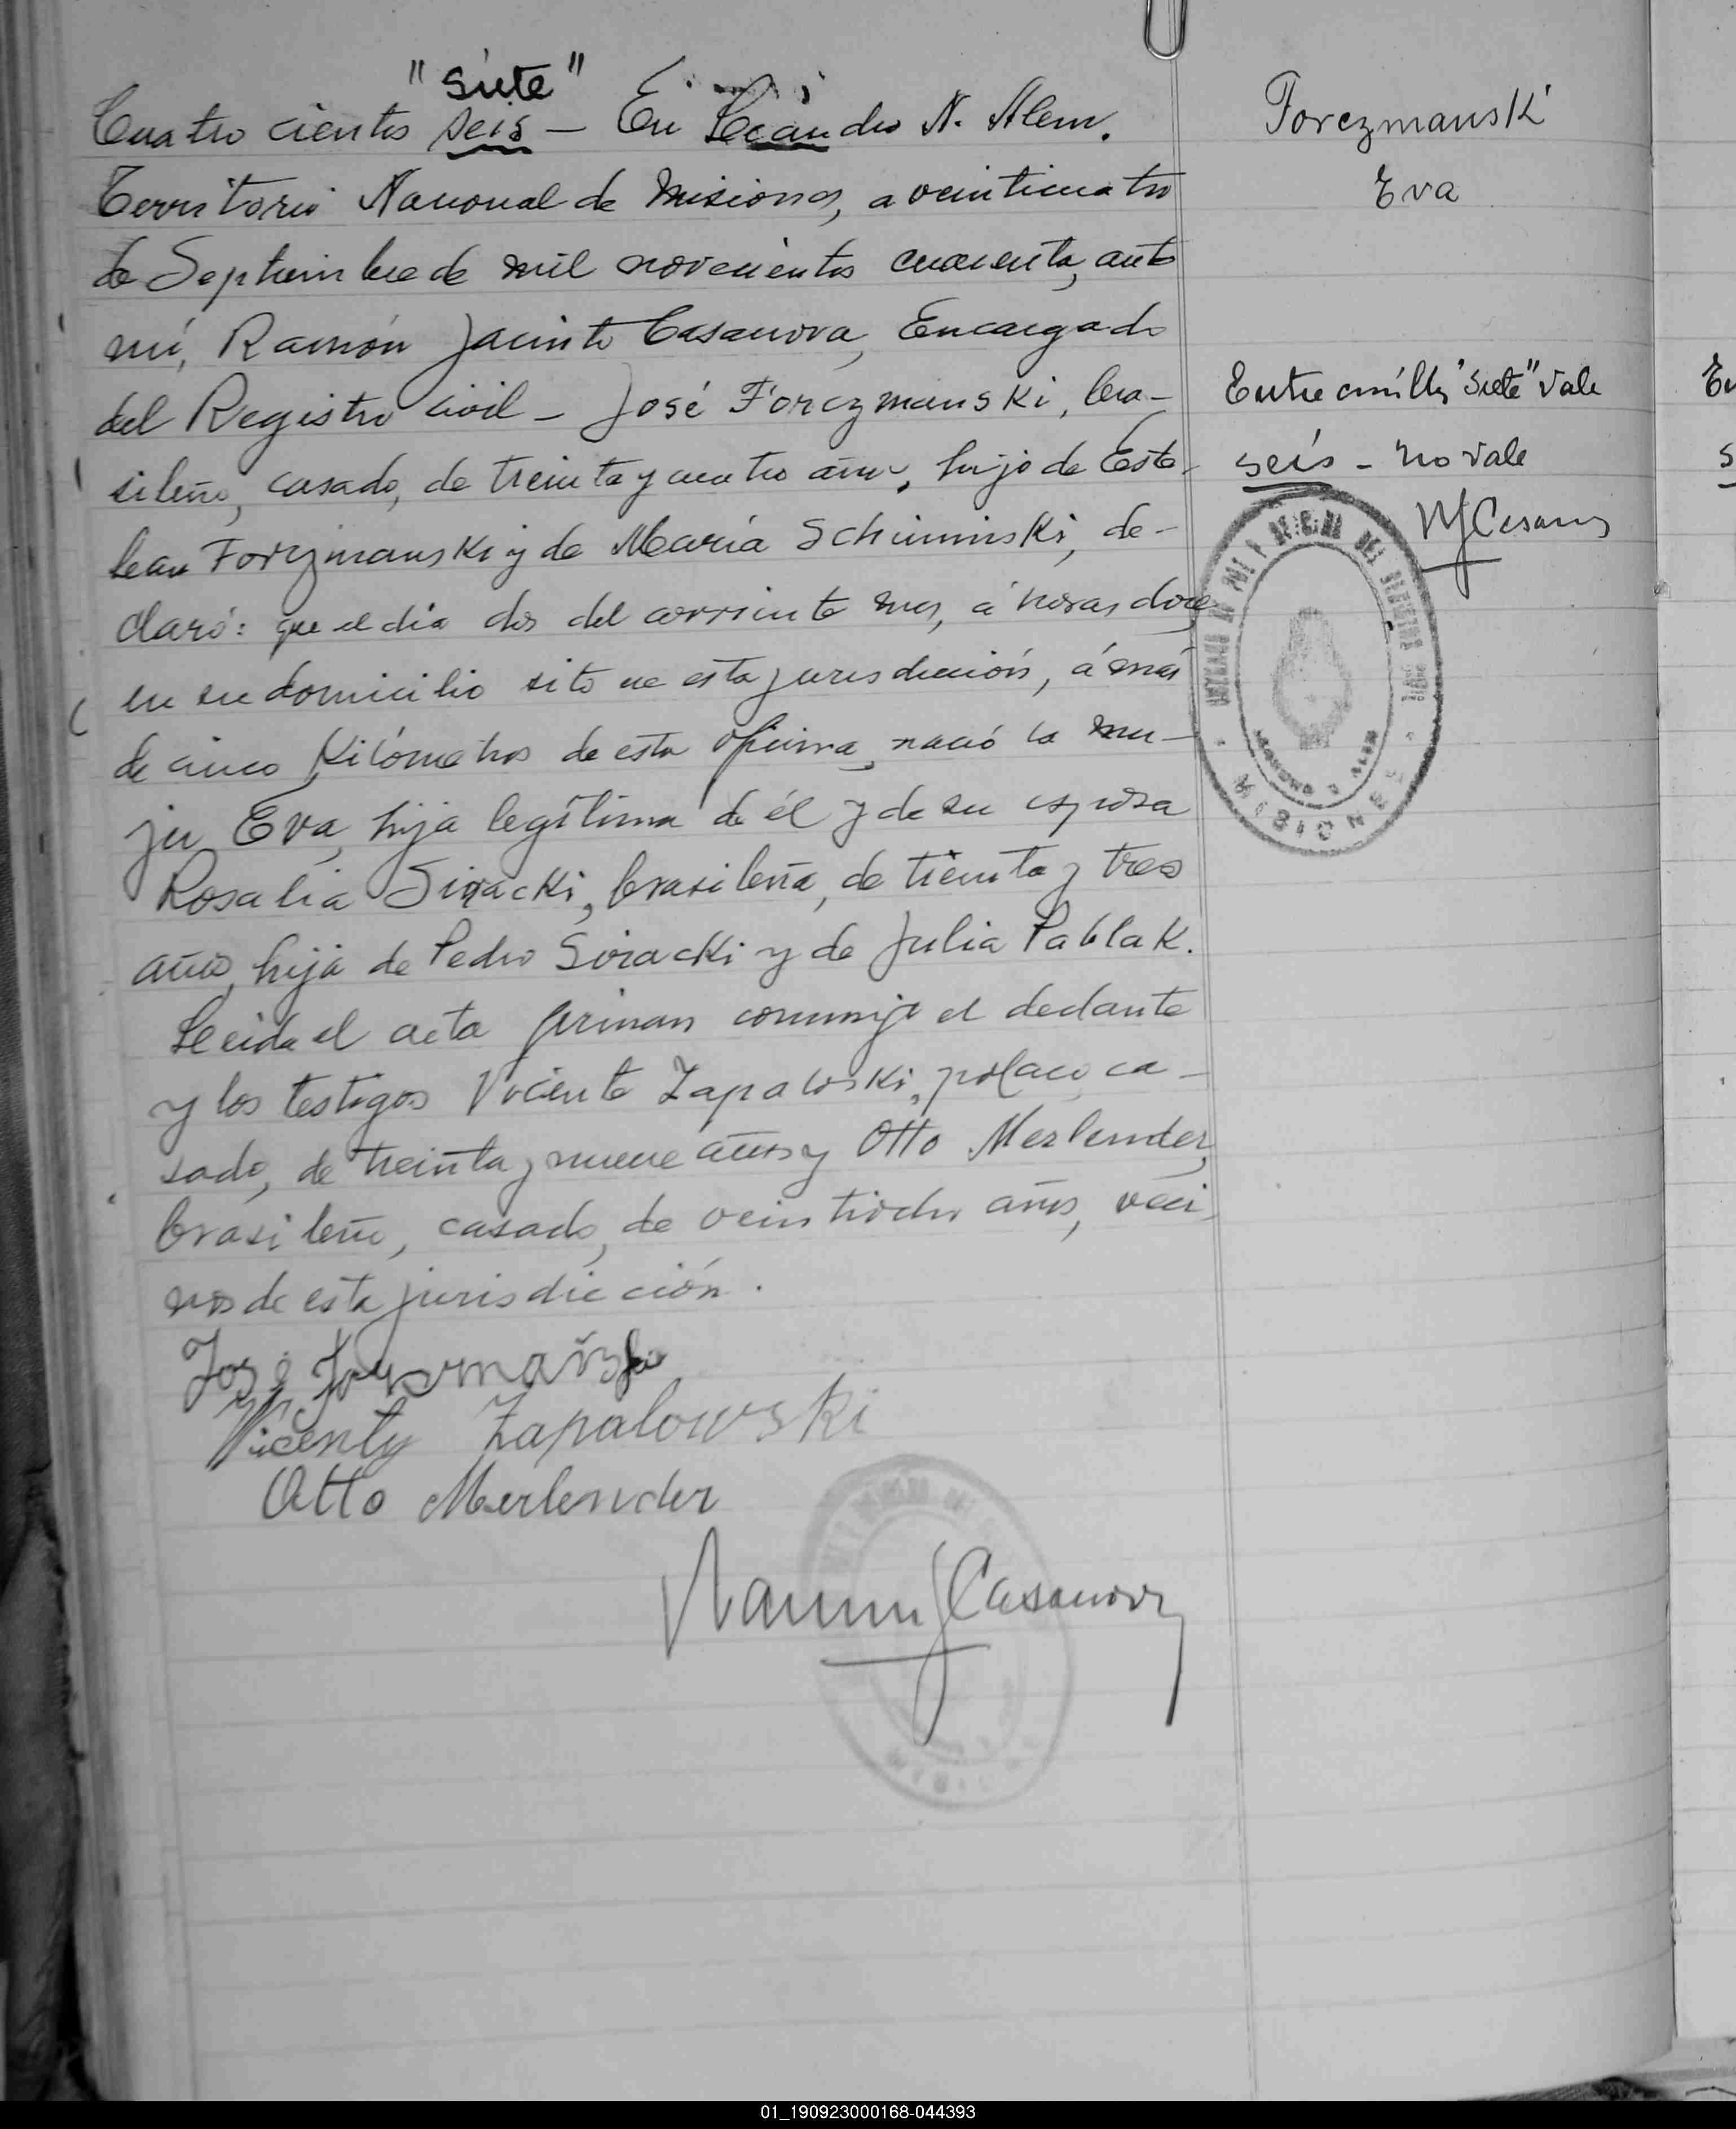 "siete"
Cuatro cientos seis - En Leandro N. Alem.
Territorio Nacional de Misiones, a veinticuatro
de Septiembre de mil novecientos cuarenta, ante
mí, Ramón Jacinto Casanova, Encargado
del Registro Civil - José Forczmanski, bra-
sileño, casado, de treinta y cuatro años, hijo de Este-
ban Forczmanski y de María Schiminski, de-
claró: que el día dos del corriente mes, á horas doce
en su domicilio sito en esta jurisdicción, á más
de cinco Kilómetros de esta oficina, nació la mu-
jer Eva, hija legítima de él y de su esposa
Rosalia Siracki, brasileña, de treinta y tres
años, hija de Pedro Siracki y de Julia Pablak.
Leida el acta firman conmigo el declante
y los testigos Vicente Zapaloski, polaco, ca-
sado, de treinta y nueve años y Otto Merlender,
brasileño, casado, de veintiocho años, veci-
nos de esta jurisdicción.
José
Vicenty Zapalowski
Otto Merlender
Ramón J Casanova
Forczmanski
Eva
Entre comillas "siete" vale
seis - no vale
RJ Casanova
MISIONES
Eu
s
01_190923000168-044393